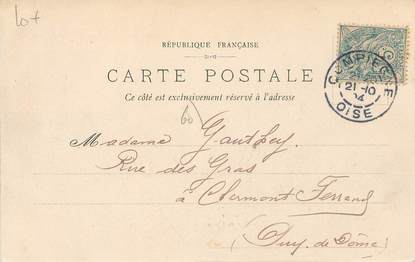 RÉPUBLIQUE FRANÇAISE
CARTE POSTALE
Ce côté est exclusivement réservé à l'adresse
COMPIEGNE
21-10
04
OISE
60
Madame Gauthey
Rue des Gras
à Clermont Ferrand
(Puy-de-Dôme)